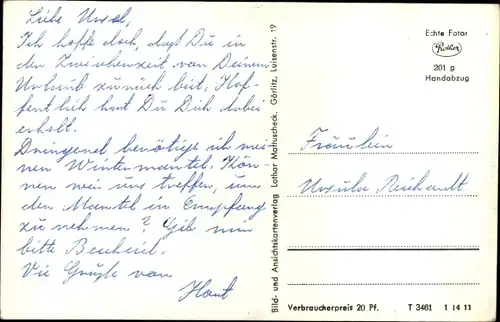 Liebe Ursel,
Ich hoffe doch, dass Du in
der Zwischenzeit von Deinem
Urlaub zurück bist. Hof-
fentlich hast Du Dich dabei
erholt.
Dringend benötige ich mei-
nen Wintermantel. Kön-
nen wir uns treffen, um
den Mantel in Empfang
zu nehmen? Gib mir
bitte Bescheid.
Vie Grüße von
Horst
Bild- und Ansichtskartenverlag Lothar Mattuscheck, Görlitz, Luisenstr. 19
Echte Fotos
201 g
Handabzug
Fräulein
Ursula Reichardt
Verbraucherpreis 20 Pf. T 3461 1 14 11